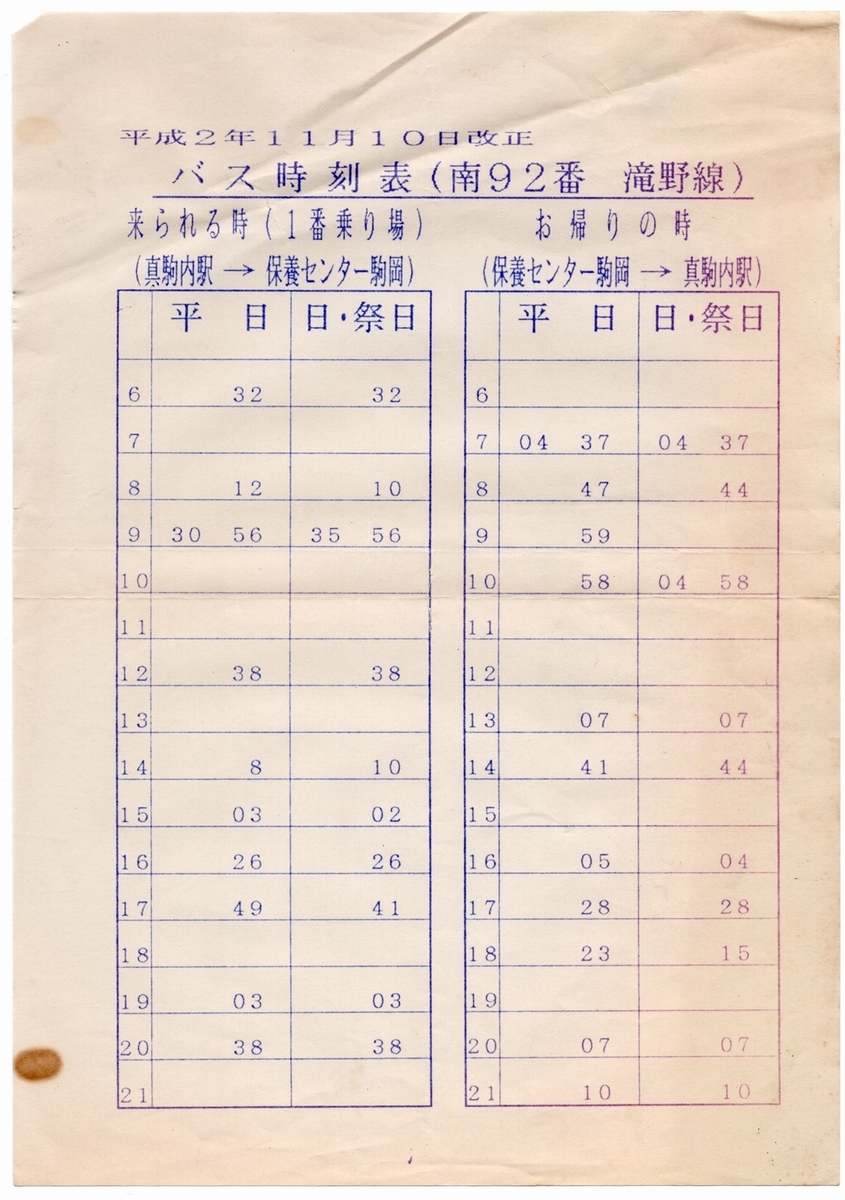 平成2年11月10日改正
バス時刻表(南92番 滝野線)
来られる時(1番乗り場)
(真駒内駅 → 保養センター駒岡)
平 日 日・祭日
6 32 32
7
8 12 10
9 30 56 35 56
10
11
12 38 38
13
14 8 10
15 03 02
16 26 26
17 49 41
18
19 03 03
20 38 38
21
お帰りの時
(保養センター駒岡 → 真駒内駅)
平 日 日・祭日
6
7 04 37 04 37
8 47 44
9 59
10 58 04 58
11
12
13 07 07
14 41 44
15
16 05 04
17 28 28
18 23 15
19
20 07 07
21 10 10